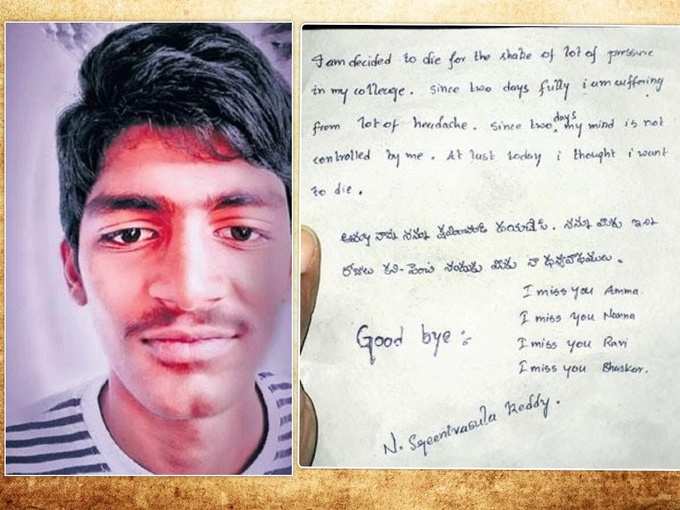 I am decided to die for the shake of lot of pressure
in my colleuge. since two days fully i am suffering
from lot of headache. since two days my mind is not
controlled by me. At last today i thought i want
to die.
అమ్మ నాన్న నన్ను క్షమించండి నన్ను మీరు ఇన్ని
రోజులు కని-పెంచి నందుకు మీకు నా ధన్యవాదములు.
I miss you Amma.
I miss you Nanna
I miss you Ravi
I miss you Bhaskar.
Good bye :-
N. Sreenivasula Reddy.